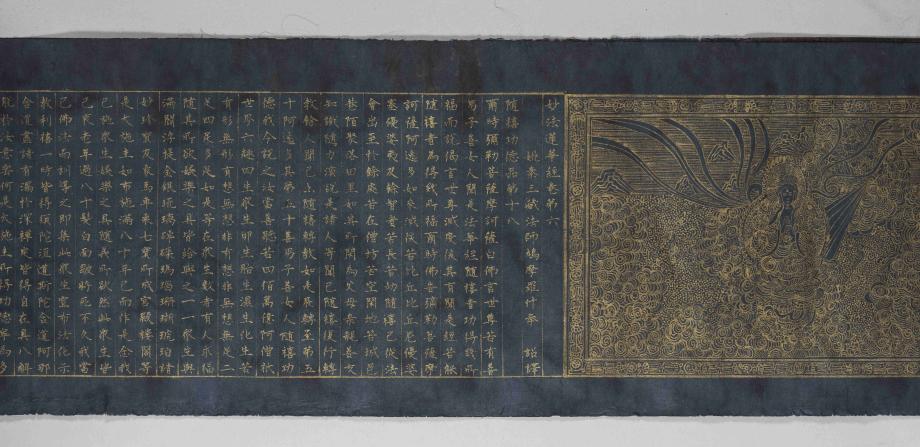 妙法蓮華經卷第六
姚秦三藏法師鳩摩羅什奉　詔譯
隨喜功德品第十八
爾時彌勒菩薩摩訶薩白佛言世尊若有善
男子善女人聞是法華經隨喜者得幾所
福而說偈言世尊滅度後其有聞是經若能
隨喜者為得幾所福爾時佛告彌勒菩薩摩
訶薩阿逸多如來滅後若比丘比丘尼優婆
塞優婆夷及餘智者若長若幼隨喜已從法
會出至於餘處若在僧坊若空閑地若城邑
巷陌聚落田里如其所聞為父母宗親善友
知識隨力演說是諸人等聞已隨喜復行轉
教餘人聞已亦隨喜轉教如是展轉至第五
十阿逸多其第五十善男子善女人隨喜功
德我今說之汝當善聽若四百萬億阿僧祇
世界六趣四生眾生卵生胎生濕生化生若
有形無形有想無想非有想非無想無足二
足四足多足如是等在眾生數者有人求福
隨其所欲娛樂之具皆給與之一一眾生與
滿閻浮提金銀琉璃硨磲瑪瑙珊瑚琥珀諸
妙珍寶及象馬車乘七寶所成宮殿樓閣等
是大施主如布施滿八十年已而作是念我
已施眾生娛樂之具隨意所欲然此眾生皆
已衰老年過八十髮白面皺將死不久我當
以佛法而訓導之即集此眾生宣布法化示
教利喜一時皆得須陀洹道斯陀含道阿那
含道盡諸有漏於深禪定皆得自在具八解
脫於汝意云何是大施主所得功德寧為多